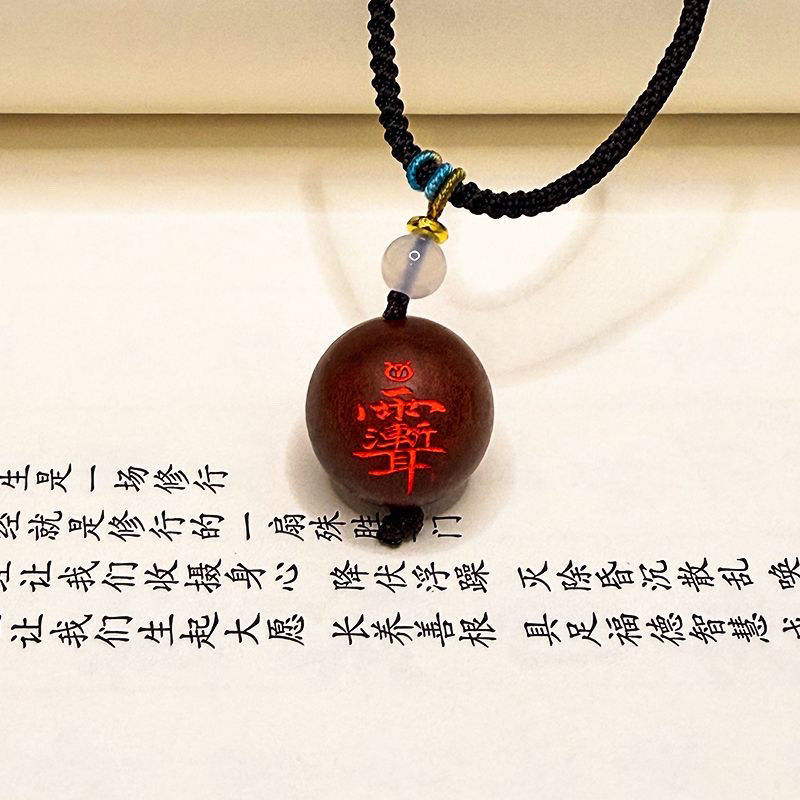 生是一场修行
经就是修行的一扇殊胜门
让我们收摄身心 降伏浮躁 灭除昏沉散乱 唤
让我们生起大愿 长养善根 具足福德智慧